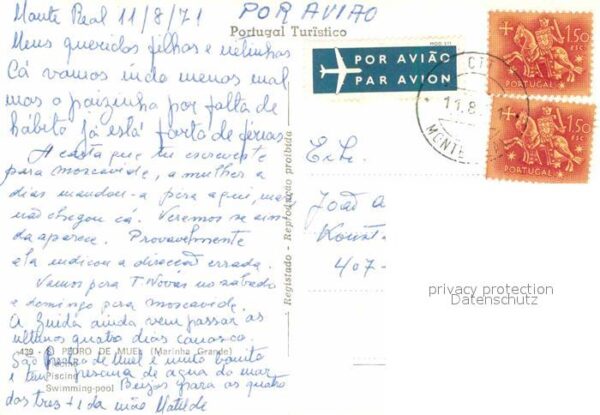 Monte Real 11/8/71
POR AVIÃO
Portugal Turístico
Meus queridos filhos e netinhos
Cá vamos indo menos mal
mas o paizinho por falta de
hábito já está farto de férias
A carta que tu escreveste
para moscavide, a mulher a
dias mandou-a para aqui, mas
não chegou cá. Veremos se ain-
da aparece. Provavelmente
ela indicou a direcção errada.
Vamos para T. Novas no sabado
e domingo para moscavide.
A Zuida ainda vem passar os
ultimos quatro dias conosco.
439 - S. PEDRO DE MUEL (Marinha Grande)
São Pedro de Muel é muito bonito
Piscina
e tem piscina de agua do mar
Piscine
Swimming-pool
Beijos para os quatro
dos tres + 1 da mãe Matilde
MOD. 111
POR AVIÃO
PAR AVION
Registado - Reprodução proibida
1$50
ESC.
PORTUGAL
1$50
ESC.
PORTUGAL
CTT
11.8
MONTE
João A
407-
privacy protection
Datenschutz